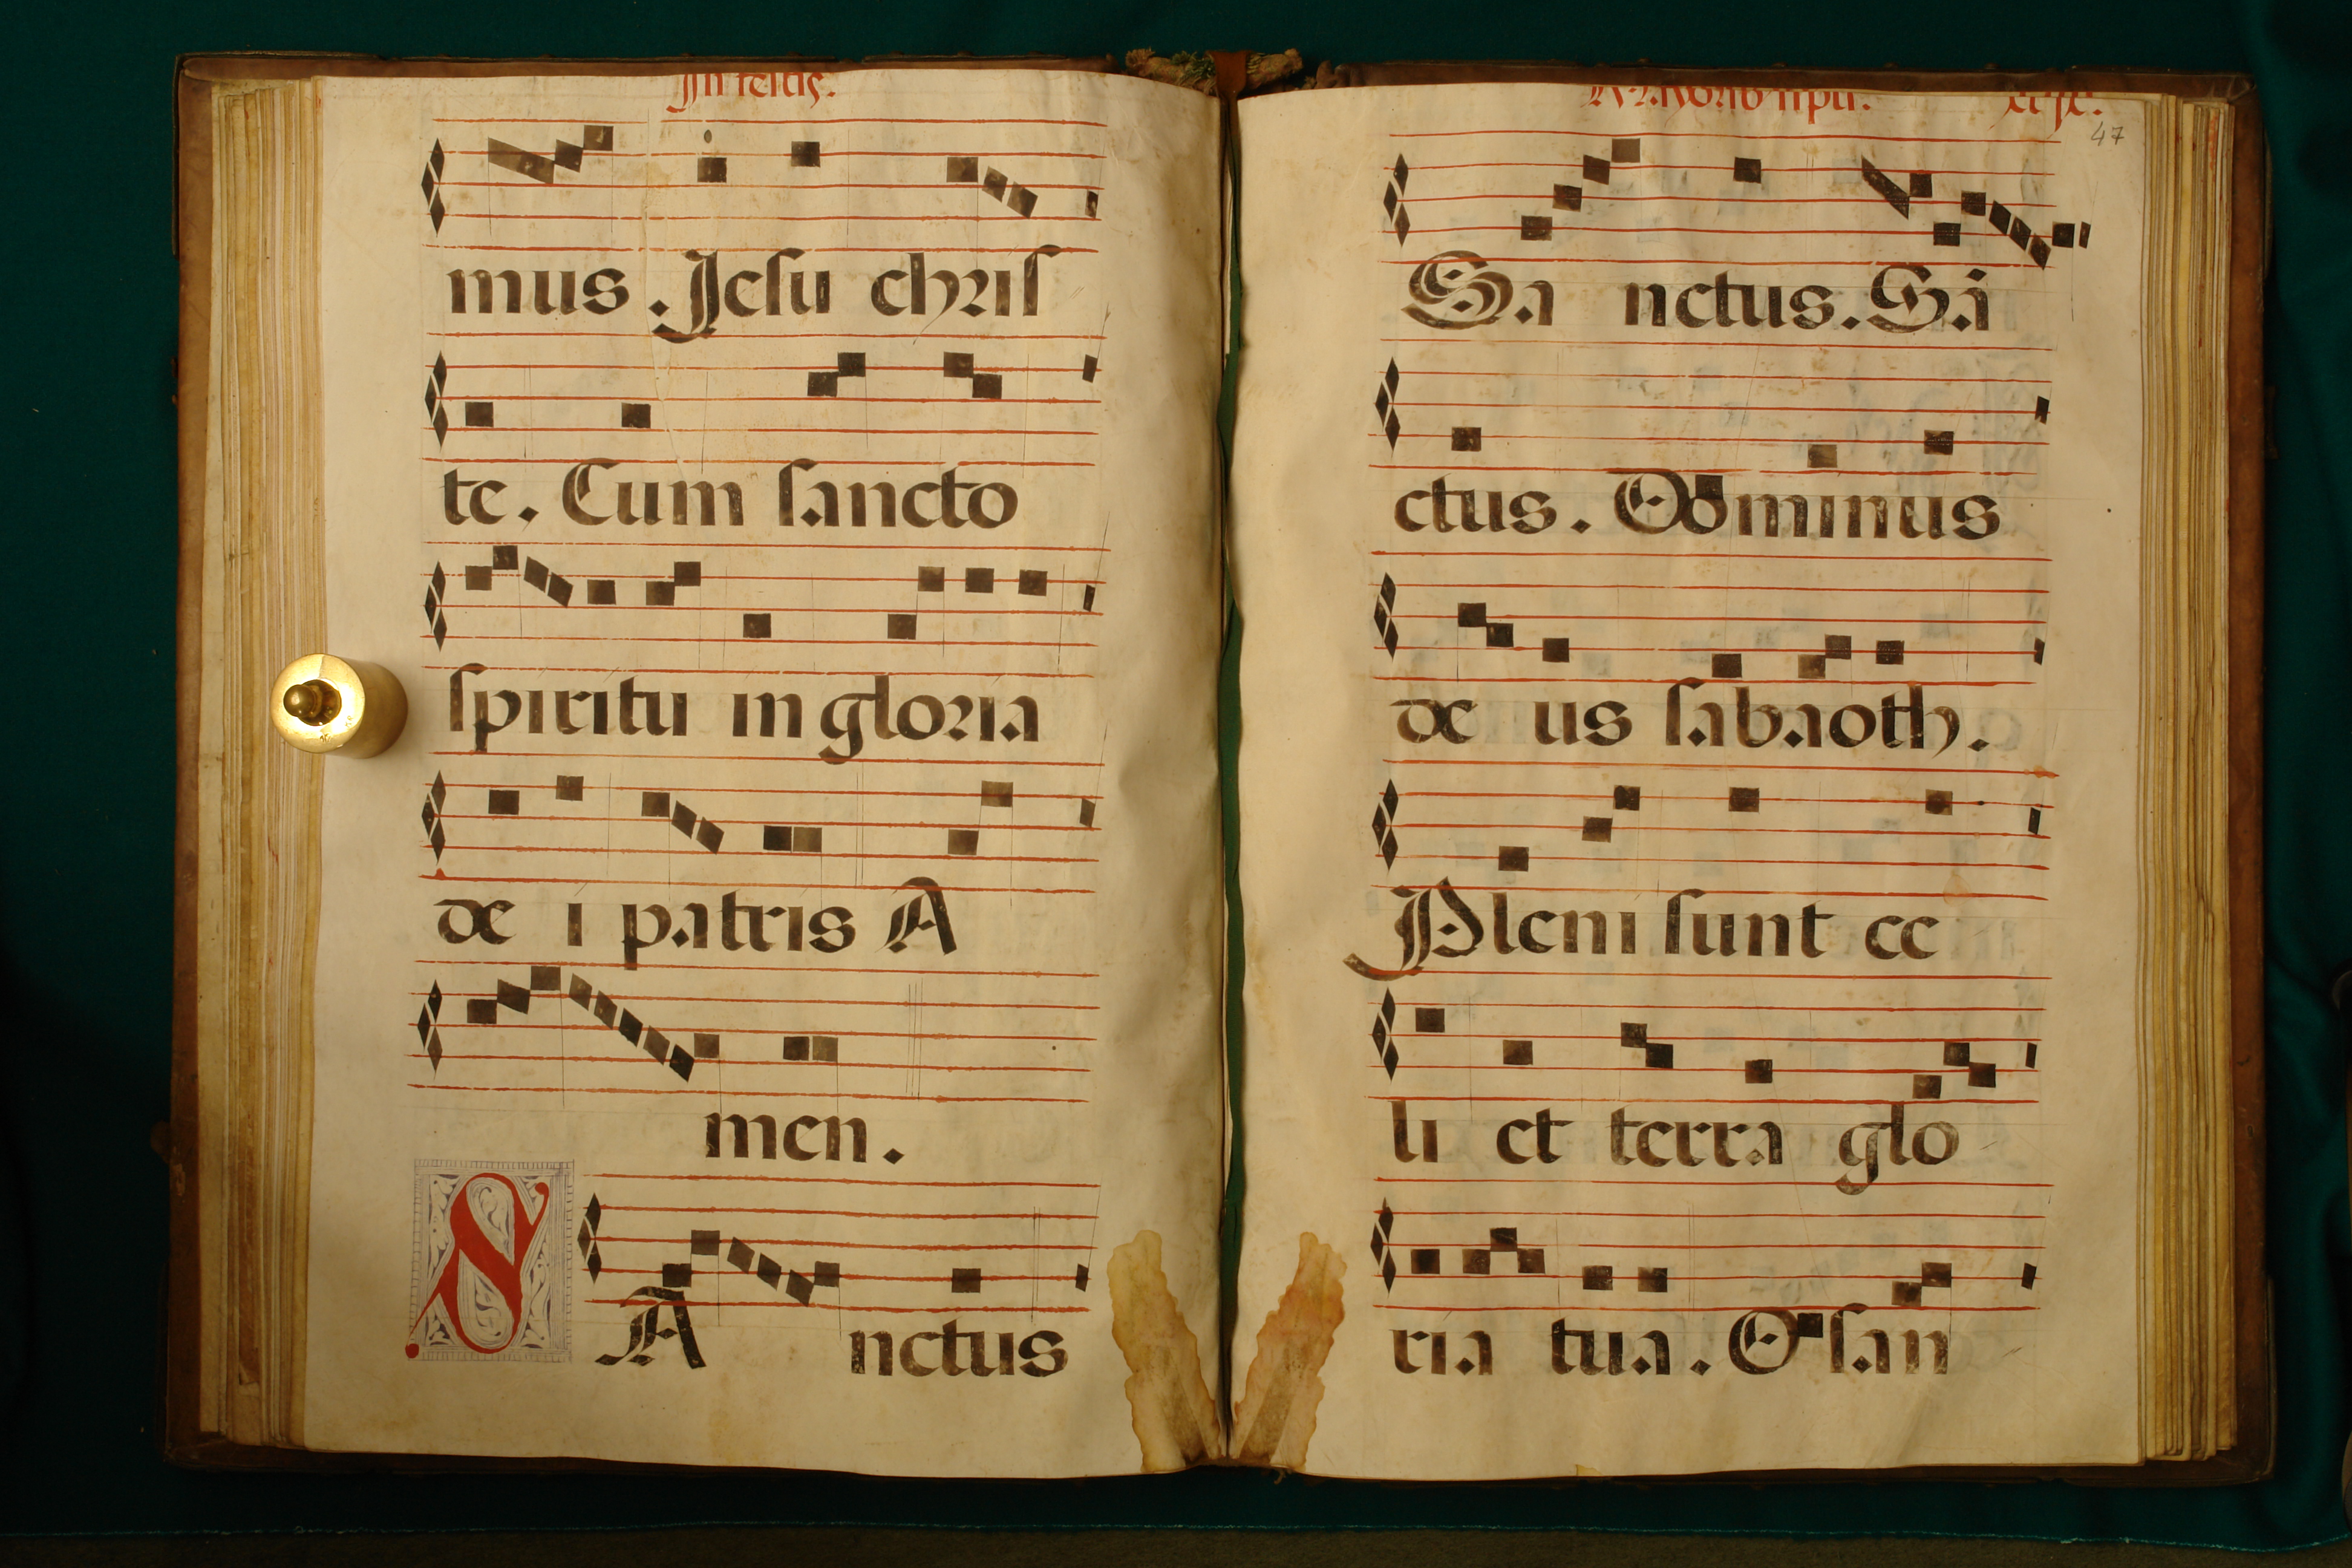 In festis.
mus . Jesu chris
te . Cum sancto
spiritu in gloria
de i patris A
men .
S A nctus
47
Sa nctus . Sa
ctus . Dominus
de us sabaoth .
Pleni sunt ce
li et terra glo
ria tua . Osan